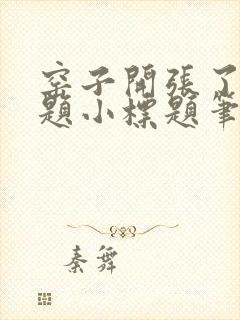 窑子開張了
題小標題筆
秦舞